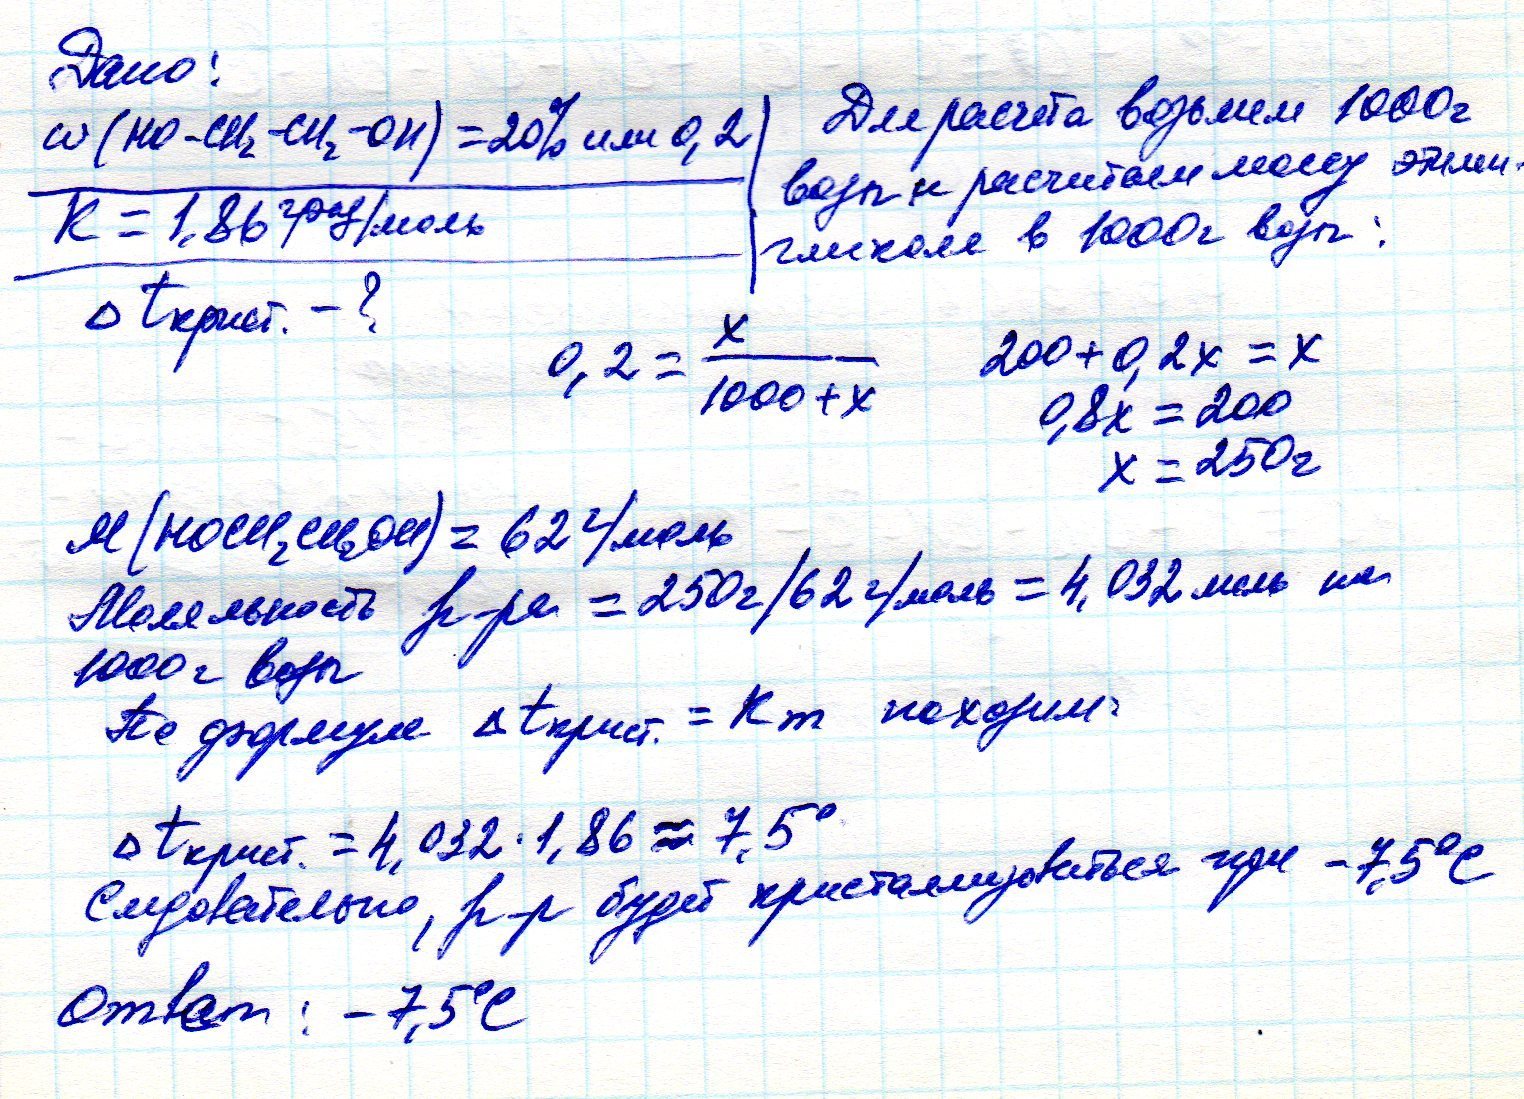 Дано:
ω(HO-CH₂-CH₂-OH) = 20% или 0,2
K = 1,86 град/моль
Δt крист. - ?
Для расчёта возьмем 1000г
воды и расчитаем массу этилен-
гликоля в 1000г воды:
0,2 = x / (1000+x)
200 + 0,2x = x
0,8x = 200
x = 250г
M(HOCH₂CH₂OH) = 62 г/моль
Моляльность р-ра = 250г/62 г/моль = 4,032 моль на
1000г воды
По формуле Δt крист. = Km находим:
Δt крист. = 4,032 · 1,86 ≈ 7,5°
Следовательно, р-р будет кристаллизоваться при -7,5°C
Ответ: -7,5°C